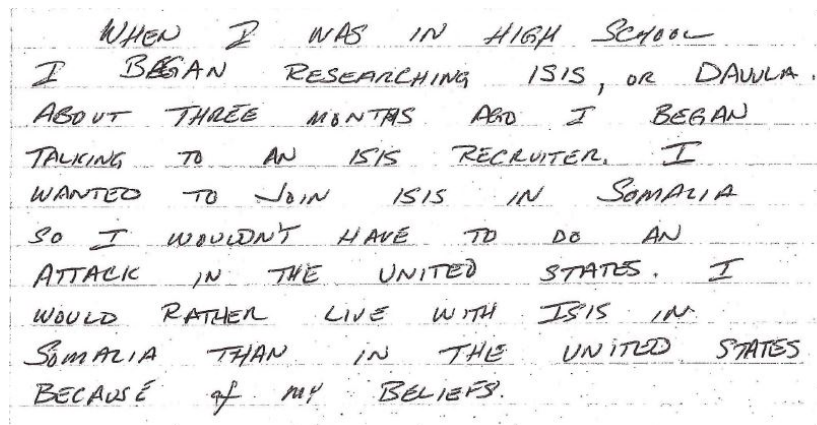 WHEN I WAS IN HIGH SCHOOL
I BEGAN RESEARCHING ISIS, OR DAWLA.
ABOUT THREE MONTHS AGO I BEGAN
TALKING TO AN ISIS RECRUITER. I
WANTED TO JOIN ISIS IN SOMALIA
SO I WOULDN'T HAVE TO DO AN
ATTACK IN THE UNITED STATES. I
WOULD RATHER LIVE WITH ISIS IN
SOMALIA THAN IN THE UNITED STATES
BECAUSE of MY BELIEFS.